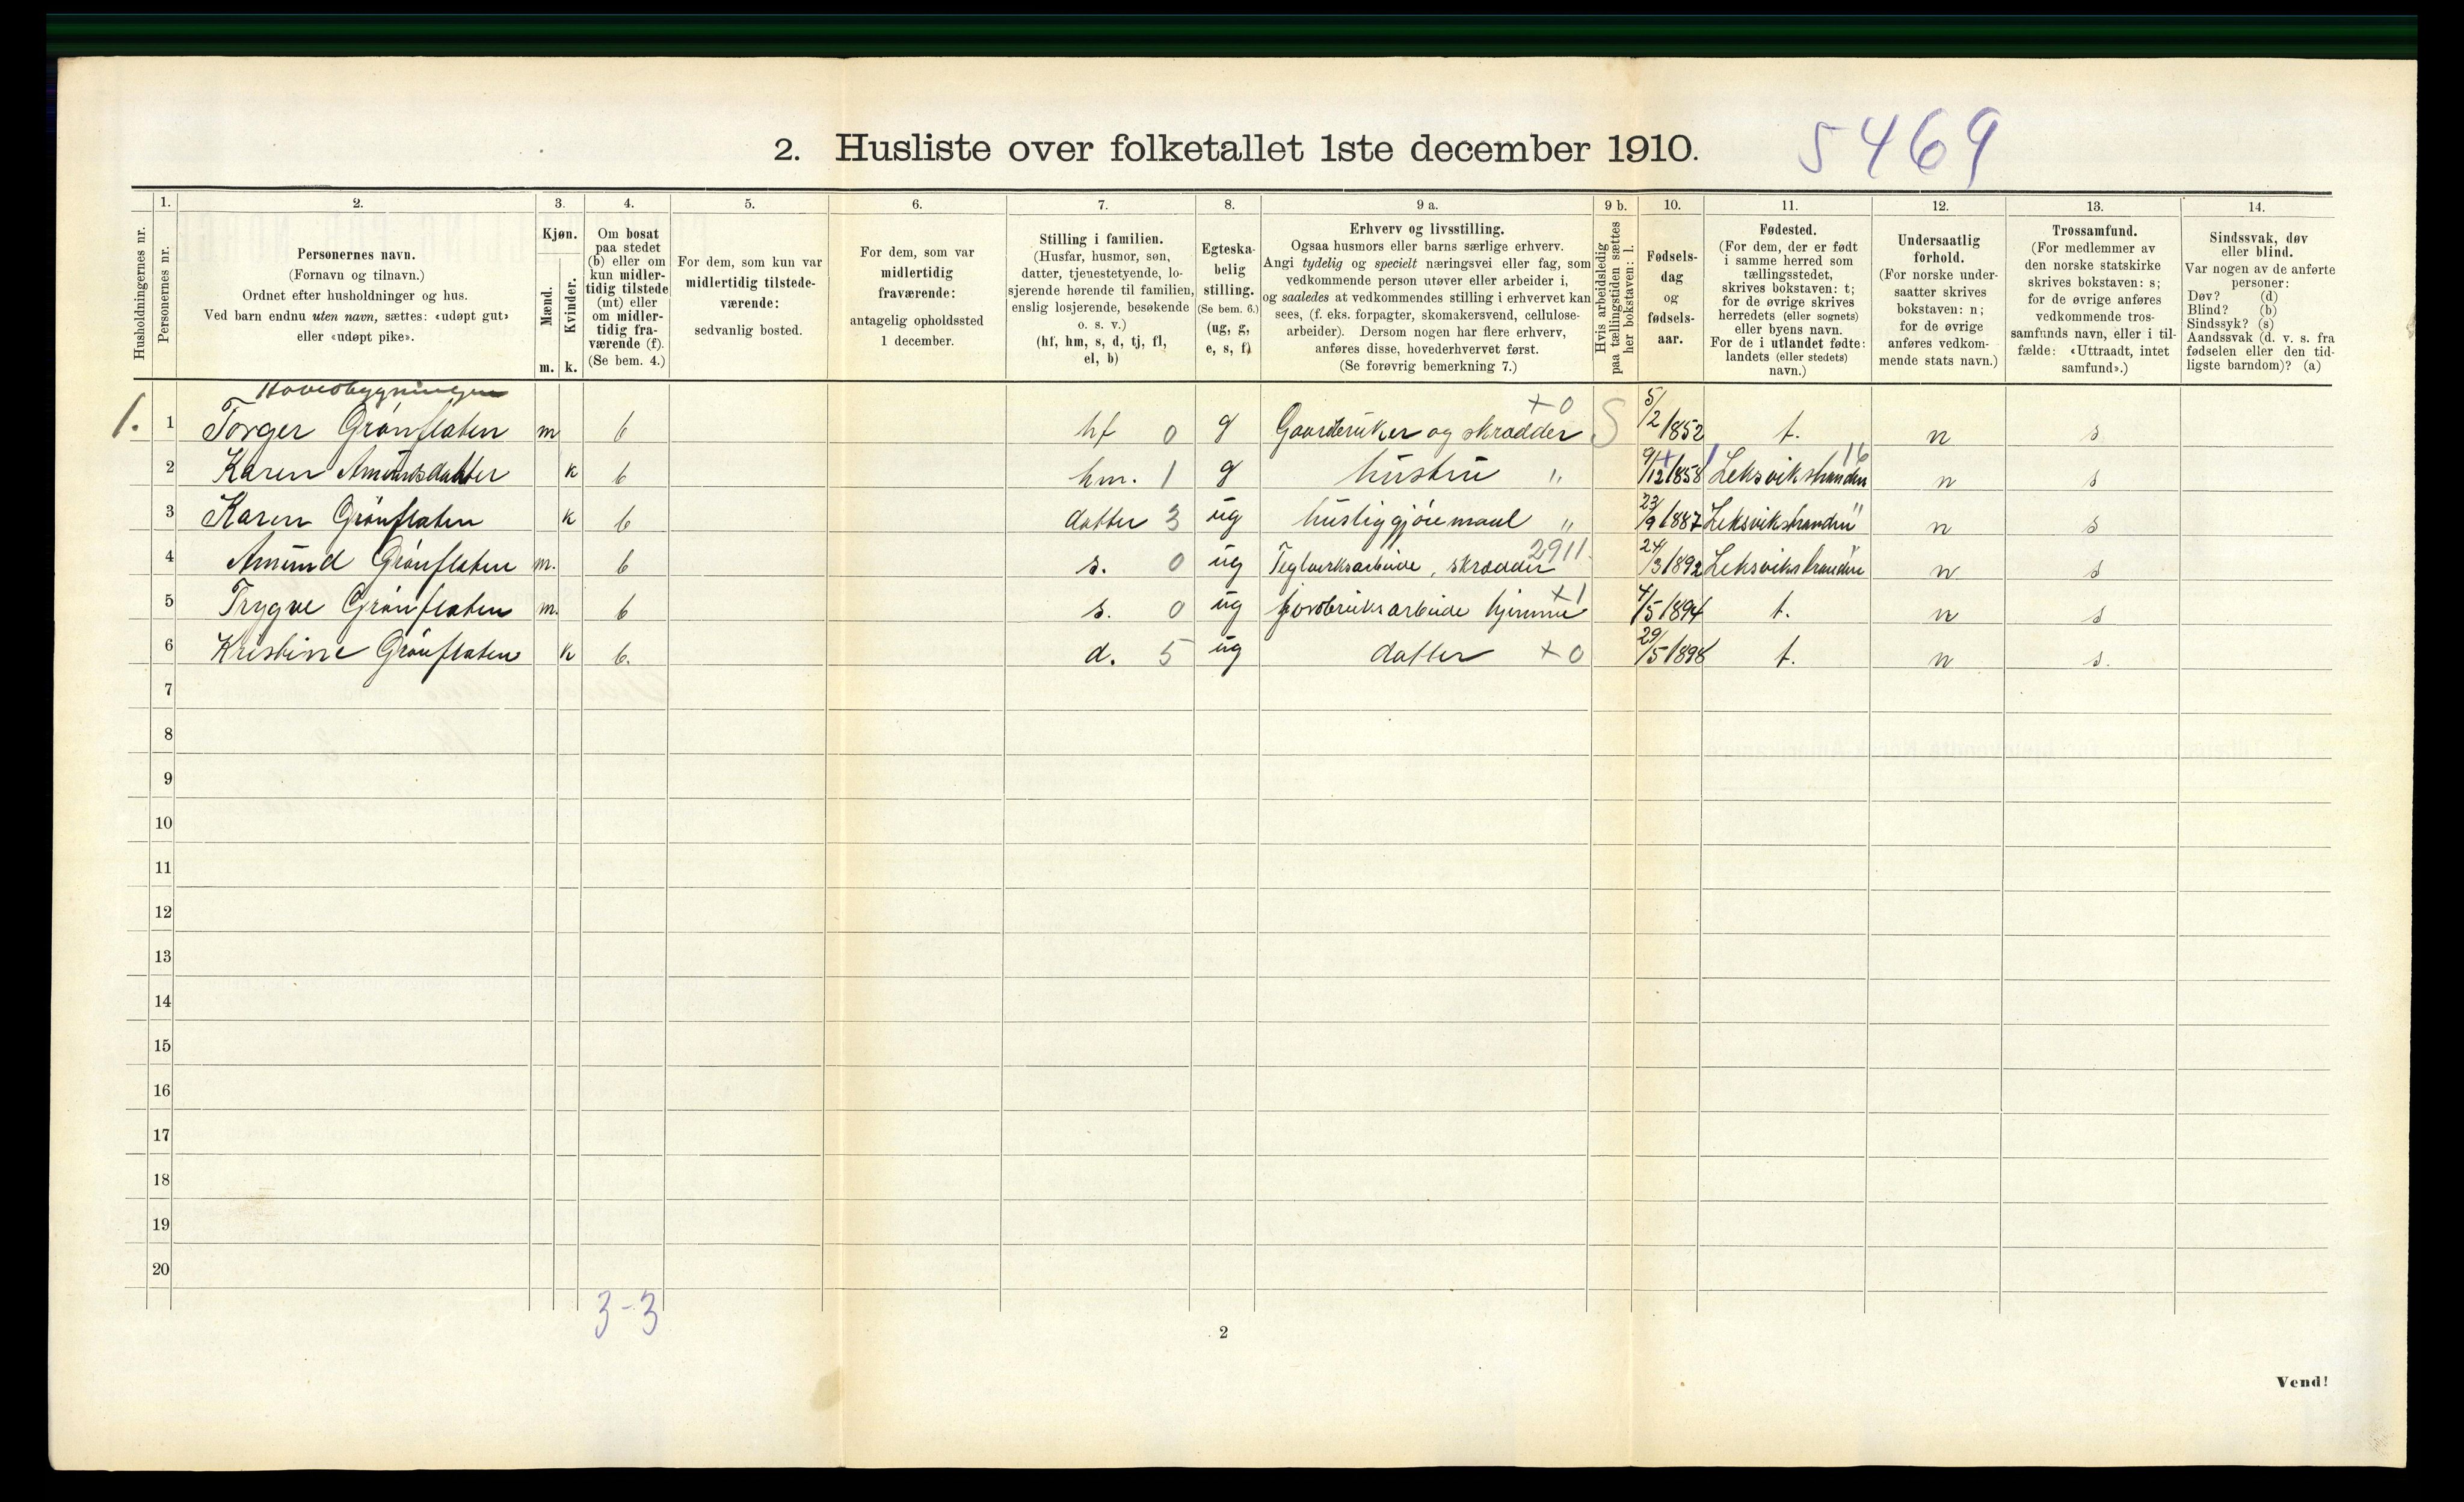 2. Husliste over folketallet 1ste december 1910. 5469
Husholdningernes nr.
1.
Personernes nr.
2.
Personernes navn.
(Fornavn og tilnavn.)
Ordnet efter husholdninger og hus.
Ved barn endnu uten navn, sættes: «udøpt gut»
eller «udøpt pike».
3.
Kjøn.
Mænd.
Kvinder.
m. k.
4.
Om bosat
paa stedet
(b) eller om
kun midler-
tidig tilstede
(mt) eller
om midler-
tidig fra-
værende (f).
(Se bem. 4.)
5.
For dem, som kun var
midlertidig tilstede-
værende:
sedvanlig bosted.
6.
For dem, som var
midlertidig
fraværende:
antagelig opholdssted
1 december.
7.
Stilling i familien.
(Husfar, husmor, søn,
datter, tjenestetyende, lo-
sjerende hørende til familien,
enslig losjerende, besøkende
o. s. v.)
(hf, hm, s, d, tj, fl,
el, b)
8.
Egteska-
belig
stilling.
(Se bem. 6.)
(ug, g,
e, s, f)
9 a.
Erhverv og livsstilling.
Ogsaa husmors eller barns særlige erhverv.
Angi tydelig og specielt næringsvei eller fag, som
vedkommende person utøver eller arbeider i,
og saaledes at vedkommendes stilling i erhvervet kan
sees, (f. eks. forpagter, skomakersvend, cellulose-
arbeider). Dersom nogen har flere erhverv,
anføres disse, hovederhvervet først.
(Se forøvrig bemerkning 7.)
9 b.
Hvis arbeidsledig
paa tællingstiden sættes
her bokstaven: l.
10.
Fødsels-
dag
og
fødsels-
aar.
11.
Fødested.
(For dem, der er født
i samme herred som
tællingsstedet,
skrives bokstaven: t;
for de øvrige skrives
herredets (eller sognets)
eller byens navn.
For de i utlandet fødte:
landets (eller stedets)
navn.)
12.
Undersaatlig
forhold.
(For norske under-
saatter skrives
bokstaven: n;
for de øvrige
anføres vedkom-
mende stats navn.)
13.
Trossamfund.
(For medlemmer av
den norske statskirke
skrives bokstaven: s;
for de øvrige anføres
vedkommende tros-
samfunds navn, eller i til-
fælde: «Uttraadt, intet
samfund».)
14.
Sindssvak, døv
eller blind.
Var nogen av de anførte
personer:
Døv? (d)
Blind? (b)
Sindssyk? (s)
Aandssvak (d. v. s. fra
fødselen eller den tid-
ligste barndom)? (a)
Hovedbygningen
1. 1 Torger Grønflaten m b hf 0 g Gaardbruker og skrædder +0 S 5/2 1852 t. n s
2 Karen Amundsdatter k b hm. 1 g hustru " 9/12 1858 Leksvikstranden 16 n s
3 Karen Grønflaten k b datter 3 ug huslig gjøremaal " 23/9 1887 Leksvikstranden " n s
4 Amund Grønflaten m. b s. 0 ug Teglverksarbeide, skrædder 2911. 24/3 1892 Leksvikstranden " n s
5 Trygve Grønflaten m. b s. 0 ug jordbruksarbeide hjemme +1 4/5 1894 t. n s
6 Kristine Grønflaten k b. d. 5 ug datter +0 29/5 1898 t. n s.
7
8
9
10
11
12
13
14
15
16
17
18
19
20
3-3
2
Vend!